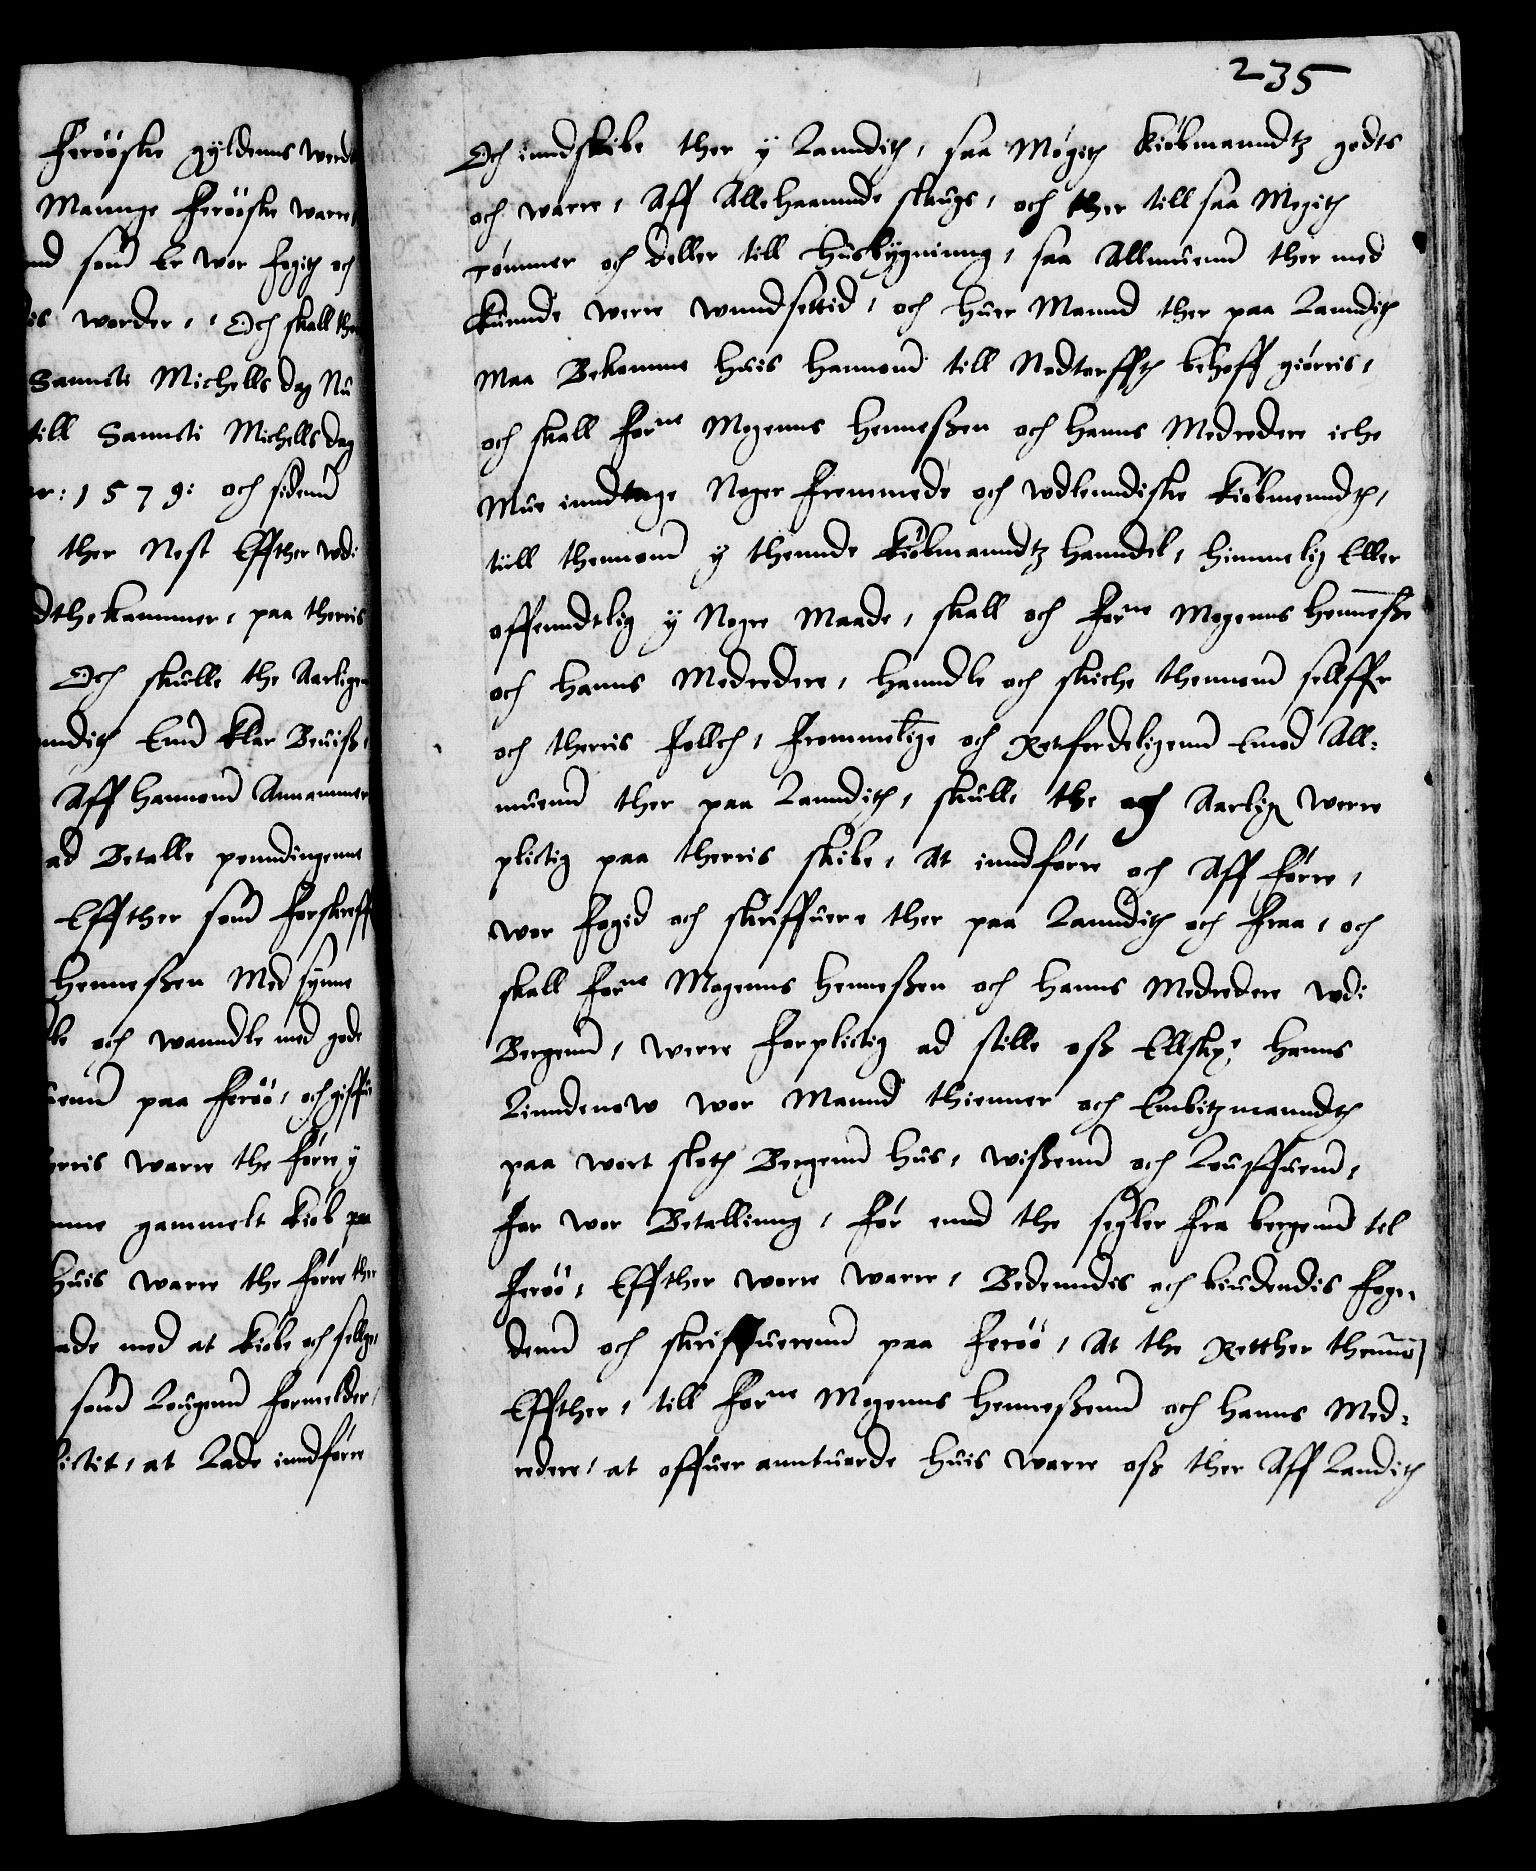 Ferööske gyldenns werdt
Mannge Ferööske warre,
nd som Er wor fogith och
is worder, Och skall the
Sanncti Michells dag Nu
till Sanncti Michells dag
r: 1579: och sidenn
ther Nest Effther wdi
dthekammer, paa therris
Och skulle the Aarligen
nndith Enn klar Beuiß,
Aff hannom Annammer
ad Betalle penndingenne
Effther som Forskreff
Henneßen Med synne
le och wanndle med gode
uenn paa Feröö, och giffue
erris warre the Førre y
nne gammelt kiøb paa
huis warre the Førre ther
ade med at kiøbe och sellge,
som Lougenn Formelder,
lictit, at Lade inndførre
235
Och inndskibe ther y Lanndith, saa Møgith kiøbmanndtz godts
och warre, Aff Allehaannde slaugs, och ther till saa Megith
tømmer och deller till husbygninng, saa Allmuenn ther med
kunnde werre wnndsettid, och huer Mannd ther paa Lanndith
Maa Bekomme huis hannom till Nodtørffth behoff giørris,
och skall Forne Mogenns Henneßen och hanns Medredere iche
Mue inndtage Noger Fremmede och wdlenndiske kiøbmenndth,
till thennom y thennde kiøbmanndtz hanndel, himmelig Eller
offenndtlig y Nogre Maade, skall och Forne Mogenns Henneße
och hanns Medredere, hanndle och skiche thennom sellffr
och therris Follch, Frommelige och Retferdeligenn Emod All-
muenn ther paa Lanndith, skulle the och Aarlign werre
plictig paa therris skibe, At inndførre och Aff Førre,
wor Fogid och skriffuere ther paa Lanndith och Fraa, och
skall Forne Mogenns Henneßen och hanns Medredere wdi
Bergenn, werre Forplictig ad stille oß Ellskr hanns
Linndenow wor Mannd thienner och Embitzmanndth
paa wort sloth Bergenn hus, wißenn och Louffuenn,
For wor Betallinng, Før ennd the segler Fra bergenn tel
Feröö, Effther worre warre, Bedenndis och biudendis Foge-
denn och skriffuerenn paa Feröö, At the Retther thennom
Effther, till Forne Mogenns Henneßenn och hanns Med-
redere, at offuer anntuorde huis warre oß ther Aff Landith